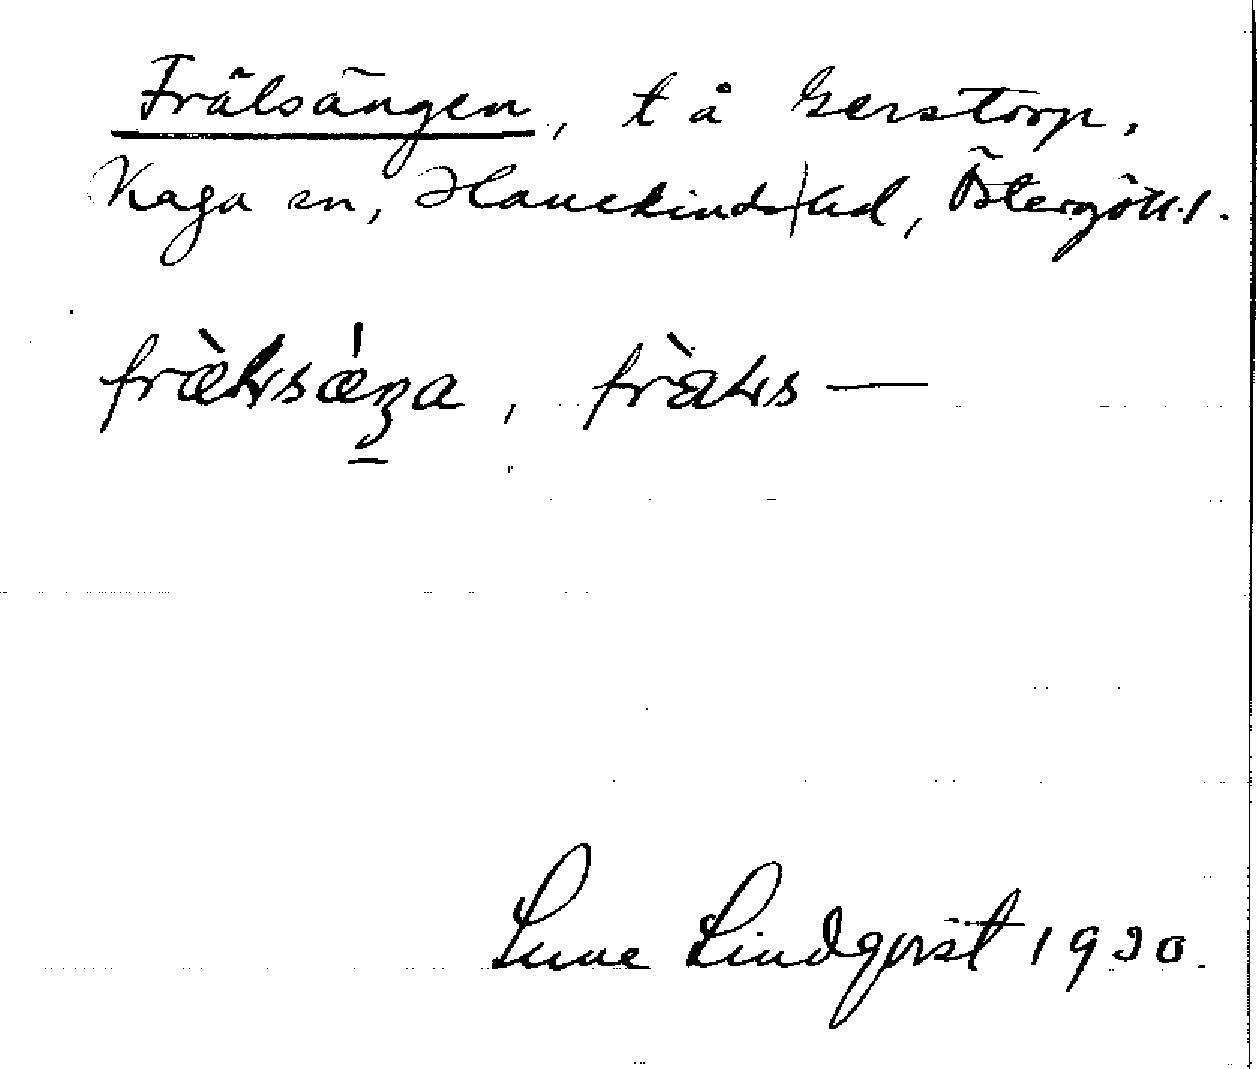 Frälsängen, t å Gerstorp,
Kaga sn, Hanekinds hd, Östergötl.
fræ̀lsǽŋa, fràls—
Sune Lindqvist 1930.